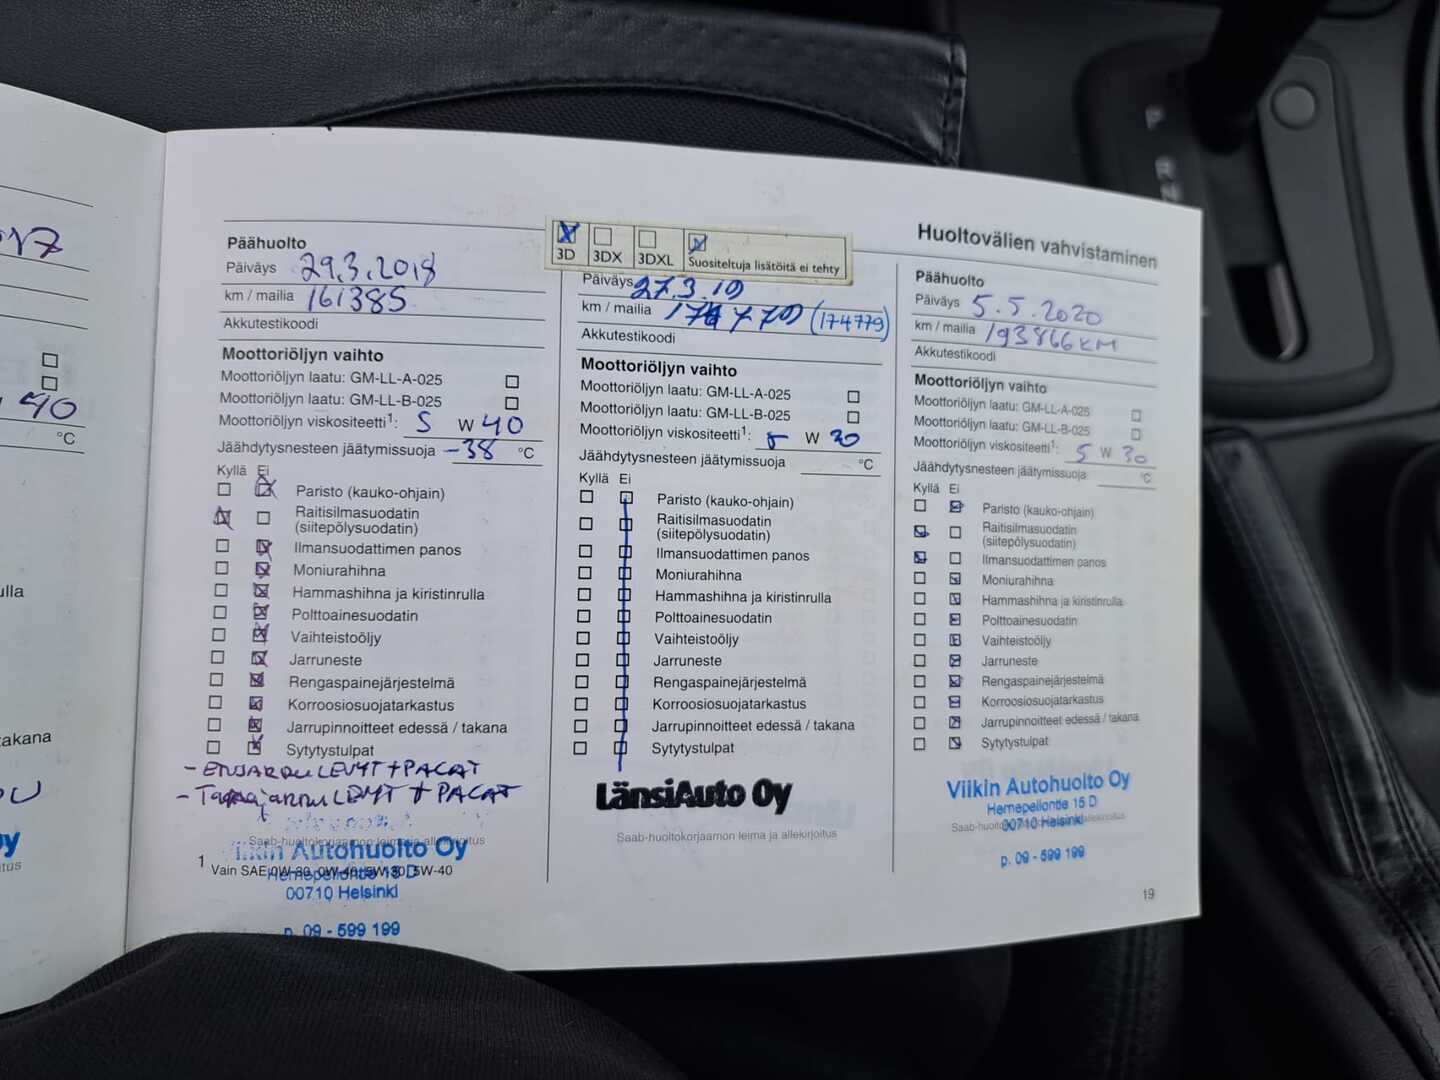 17
40
°C
ulla
takana
Oy
itus
Huoltovälien vahvistaminen
Päähuolto
Päiväys 29.3.2018
km / mailia 161385
Akkutestikoodi
Moottoriöljyn vaihto
Moottoriöljyn laatu: GM-LL-A-025
Moottoriöljyn laatu: GM-LL-B-025
Moottoriöljyn viskositeetti1: 5 W 40
Jäähdytysnesteen jäätymissuoja -38 °C
Kyllä Ei
Paristo (kauko-ohjain)
Raitisilmasuodatin
(siitepölysuodatin)
Ilmansuodattimen panos
Moniurahihna
Hammashihna ja kiristinrulla
Polttoainesuodatin
Vaihteistoöljy
Jarruneste
Rengaspainejärjestelmä
Korroosiosuojatarkastus
Jarrupinnoitteet edessä / takana
Sytytystulpat
- ETUJARRU LEVYT + PALAT
- TAKAJARRU LEVYT + PALAT
Saab-huoltokorjaamon leima ja allekirjoitus
Viikin Autohuolto Oy
Hernepellontie 15 D
00710 Helsinki
p. 09 - 599 199
1 Vain SAE 0W-30, 0W-40, 5W-30, 5W-40
3D 3DX 3DXL Suositeltuja lisätöitä ei tehty
Päiväys 27.3.19
km / mailia 174779 (174779)
Akkutestikoodi
Moottoriöljyn vaihto
Moottoriöljyn laatu: GM-LL-A-025
Moottoriöljyn laatu: GM-LL-B-025
Moottoriöljyn viskositeetti1: 5 W 30
Jäähdytysnesteen jäätymissuoja °C
Kyllä Ei
Paristo (kauko-ohjain)
Raitisilmasuodatin
(siitepölysuodatin)
Ilmansuodattimen panos
Moniurahihna
Hammashihna ja kiristinrulla
Polttoainesuodatin
Vaihteistoöljy
Jarruneste
Rengaspainejärjestelmä
Korroosiosuojatarkastus
Jarrupinnoitteet edessä / takana
Sytytystulpat
LänsiAuto Oy
Saab-huoltokorjaamon leima ja allekirjoitus
Päähuolto
Päiväys 5.5.2020
km / mailia 193866 KM
Akkutestikoodi
Moottoriöljyn vaihto
Moottoriöljyn laatu: GM-LL-A-025
Moottoriöljyn laatu: GM-LL-B-025
Moottoriöljyn viskositeetti1: 5 W 30
Jäähdytysnesteen jäätymissuoja °C
Kyllä Ei
Paristo (kauko-ohjain)
Raitisilmasuodatin
(siitepölysuodatin)
Ilmansuodattimen panos
Moniurahihna
Hammashihna ja kiristinrulla
Polttoainesuodatin
Vaihteistoöljy
Jarruneste
Rengaspainejärjestelmä
Korroosiosuojatarkastus
Jarrupinnoitteet edessä / takana
Sytytystulpat
Viikin Autohuolto Oy
Hernepellontie 15 D
Saab-huoltokorjaamon leima ja allekirjoitus
00710 Helsinki
p. 09 - 599 199
19
P
R